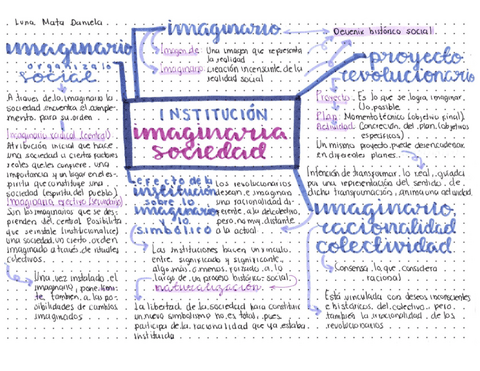 Luna Mata Daniela
imaginario
Devenir histórico social
Imagen de: Una imagen que representa
la realidad
Imaginario: Creación incensante de la
realidad social
imaginario
organiza lo
social
A traves de lo imaginario la
sociedad encuentra el comple-
mento para su orden
Imaginario radical (central)
Atribución inicial que hace
una sociedad a ciertos factores
reales que les confiere una
importancia y un lugar en el es-
píritu que constituye una
sociedad (espíritu del pueblo).
Imaginario efectivo (secundario)
Son los imaginarios que se des-
prenden del central. Posibilita
que se instale (institucionalice)
una sociedad, un cierto orden
imaginado a traves de rituales
colectivos.
Una vez instalado el
imaginario, pone lími-
te tambien a las po-
sibilidades de cambios
imaginados
INSTITUCIÓN
imaginaria
sociedad
efecto de la
institución
sobre lo
imaginario
y lo
simbólico
Los revolucionarios
desean e imaginan
una racionalidad di-
ferente a la del colectivo,
pero no muy distante
a la actual.
Las instituciones hacen un vínculo
entre significado y significante,
algo más o menos forzado a lo
largo de un proceso histórico-social
naturalización
La libertad de la sociedad para constituir
un nuevo simbolismo no es total, pues
participa de la racionalidad que ya estaba
instituida
proyecto
revolucionario
Proyecto: Es lo que se logra imaginar.
Un posible
Plan: Momento técnico (objetivo final).
Actividad: Concreción del plan (objetivos
específicos)
Un mismo proyecto puede desencadenar
en diferentes planes.
Intención de transformar lo real, guiada
por una representación del sentido de
dicha transformación, anima una actividad
imaginario
racionalidad
colectividad
Consensa lo que considera
racional
Está vinculada con deseos inconscientes
e históricos del colectivo, pero
también la irracionalidad de los
revolucionarios